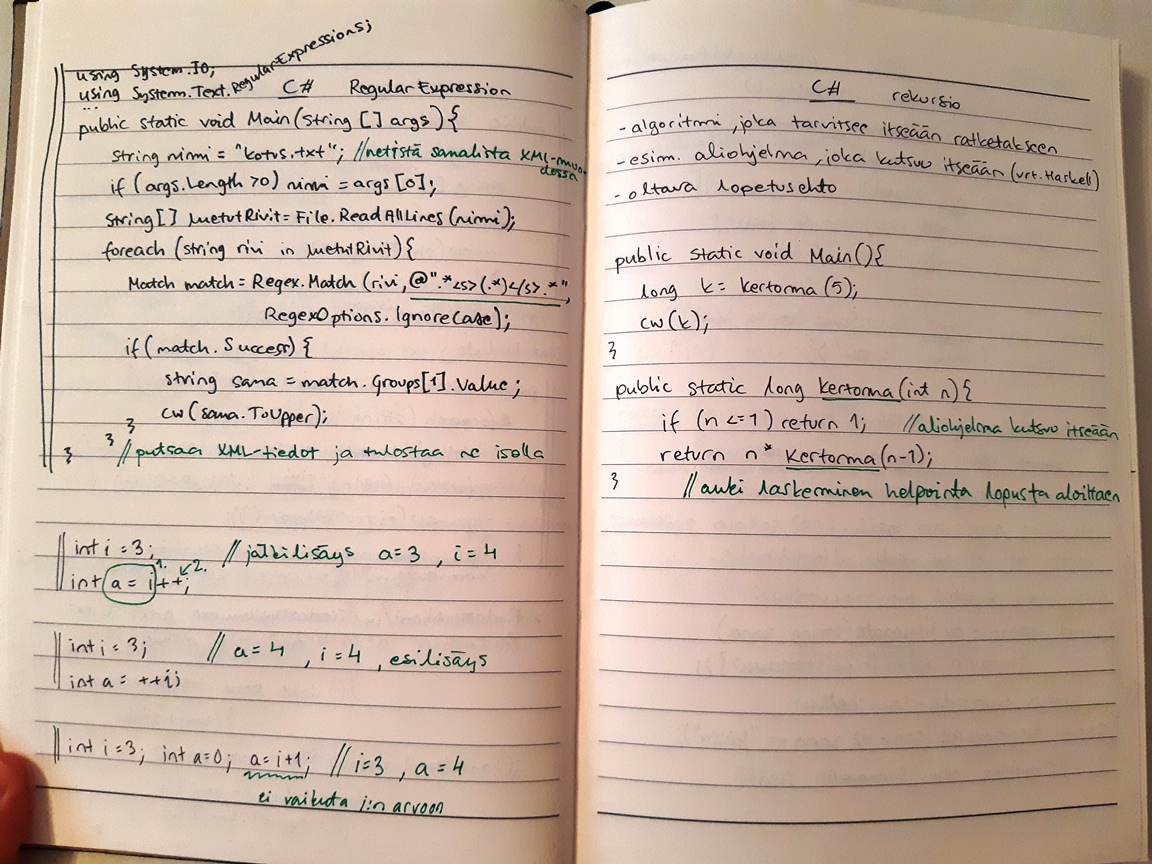 using System.IO;
using System.Text.RegularExpressions;
...
C# Regular Expression
public static void Main(String [] args) {
String nimi = "kotus.txt"; //netistä sanalista XML-muo-
dossa
if (args.Length >0) nimi = args [0];
String[] luetutRivit = File.ReadAllLines (nimi);
foreach (string rivi in luetutRivit) {
Match match = Regex.Match (rivi, @".*<s>(.*)</s>.*",
RegexOptions.IgnoreCase);
if (match.Success) {
string sana = match.Groups[1].Value;
cw (sana.ToUpper);
}
}
} //putsaa XML-tiedot ja tulostaa ne isolla
int i = 3; //jälkilisäys a=3, i=4
1. 2.
int a = i++;
int i = 3; // a=4, i=4, esilisäys
int a = ++i;
int i=3; int a=0; a=i+1; // i=3, a=4
ei vaikuta i:n arvoon
C# rekursio
- algoritmi, joka tarvitsee itseään ratketakseen
- esim. aliohjelma, joka kutsuu itseään (vrt. Haskell)
- oltava lopetusehto
public static void Main() {
long k = kertoma (5);
cw (k);
}
public static long kertoma (int n) {
if (n <= 1) return 1; //aliohjelma kutsuu itseään
return n * kertoma (n-1);
} //auki laskeminen helpointa lopusta aloittaen